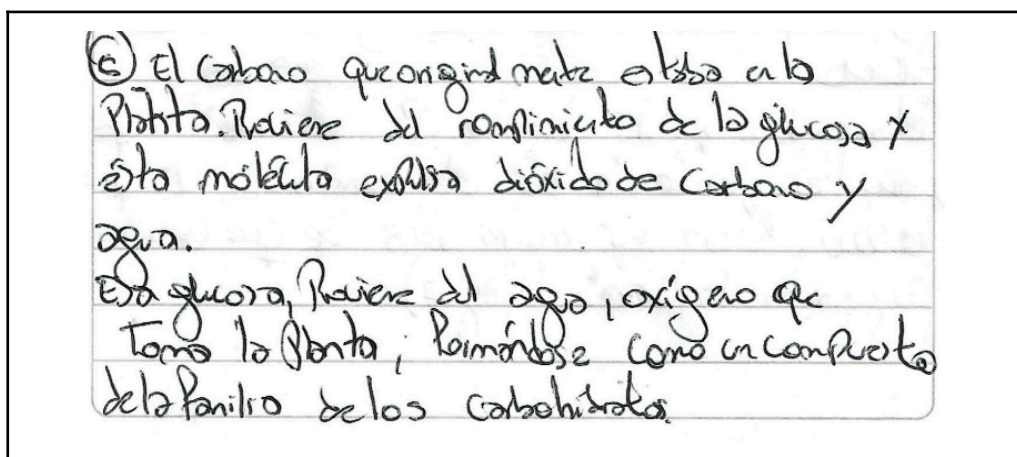 © El Carbono que originalmente estaba en la
Plantita. Proviene del rompimiento de la glucosa y
ésta molécula expulsa dióxido de Carbono y
agua.
Esa glucosa, Proviene del agua, oxígeno que
Toma la Planta, formándose como un compuesto
de la familia de los carbohidratos.